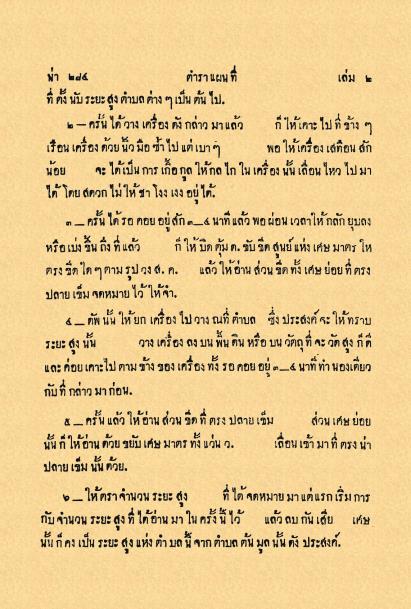 น่า ๒๘๔ ตำราแผนที่ เล่ม ๒
ที่ ตั้ง นับ ระยะ สูง ตำบล ต่าง ๆ เป็น ต้น ไป.
๒ — ครั้น ได้ วาง เครื่อง ดัง กล่าว มา แล้ว ก็ ให้ เคาะ ไป ที่ ข้าง ๆ
เรือน เครื่อง ด้วย นิ้ว มือ ซ้ำ ไป แต่ เบา ๆ พอ ให้ เครื่อง เสทือน สัก
น้อย จะ ได้ เป็น การ เกื้อ กูล ให้ กล ไก ใน เครื่อง นั้น เลื่อน ไหว ไป มา
ได้ โดย สดวก ไม่ ให้ ชา โงง เงง อยู่ ได้.
๓ — ครั้น ได้ รอ คอย อยู่ สัก ๓—๔ นาที แล้ว พอ ผ่อน เวลา ให้ กลัก ยุบ ลง
หรือ เบ่ง ขึ้น ถึง ที่ แล้ว ก็ ให้ บิด ตุ้ม ด. ขับ ขีด สูนย์ แห่ง เศษ มาตร ให้
ตรง ขีด ใด ๆ ตาม รูป วง ส. ต. แล้ว ให้ อ่าน ส่วน ขีด ทั้ง เศษ ย่อย ที่ ตรง
ปลาย เข็ม จดหมาย ไว้ ให้ จำ.
๔ — ทีนี้ นั้น ให้ ยก เครื่อง ไป วาง ณที่ ตำบล ซึ่ง ประสงค์ จะ ให้ ทราบ
ระยะ สูง นั้น วาง เครื่อง ลง บน พื้น ดิน หรือ บน วัตถุ ที่ จะ วัด สูง ก็ ดี
และ ค่อย เคาะ ไป ตาม ข้าง ของ เครื่อง ทั้ง รอ คอย อยู่ ๓—๔ นาที ทำ นอง เดียว
กับ ที่ กล่าว มา ก่อน.
๕ — ครั้น แล้ว ให้ อ่าน ส่วน ขีด ที่ ตรง ปลาย เข็ม ส่วน เศษ ย่อย
นั้น ก็ ให้ อ่าน ด้วย ขยับ เศษ มาตร ทั้ง แว่น ว. เลื่อน เข้า มา ที่ ตรง น่า
ปลาย เข็ม นั้น ด้วย.
๖ — ให้ ตรา จำนวน ระยะ สูง ที่ ได้ จดหมาย มา แต่ แรก เริ่ม การ
กับ จำนวน ระยะ สูง ที่ ได้ อ่าน มา ใน ครั้ง นี้ ไว้ แล้ว ลบ กัน เสีย เศษ
นั้น ก็ คง เป็น ระยะ สูง แห่ง ตำ บล นี้ จาก ตำบล ต้น มูล นั้น ดัง ประสงค์.